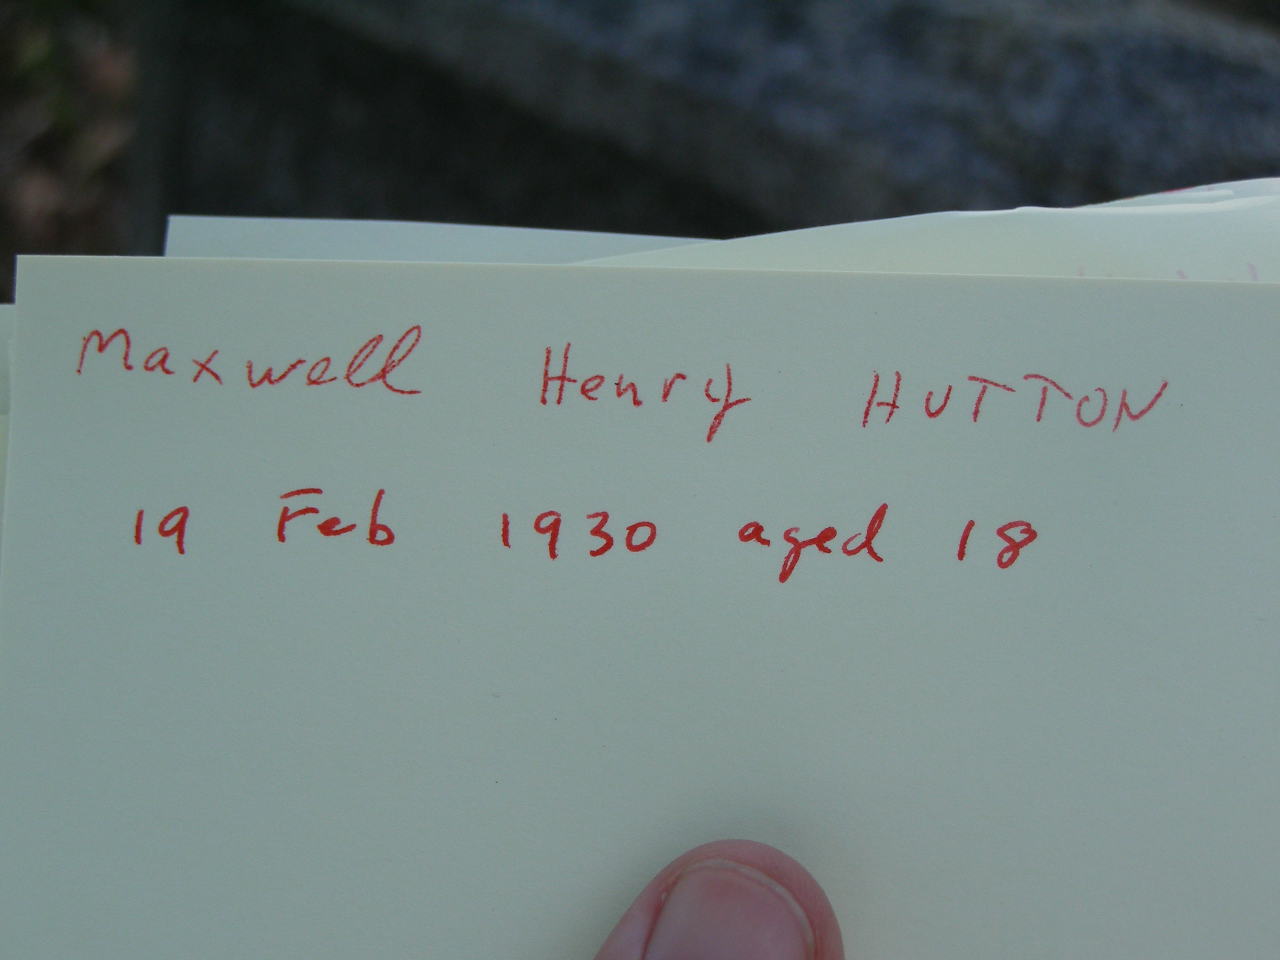 Maxwell Henry HUTTON
19 Feb 1930 aged 18